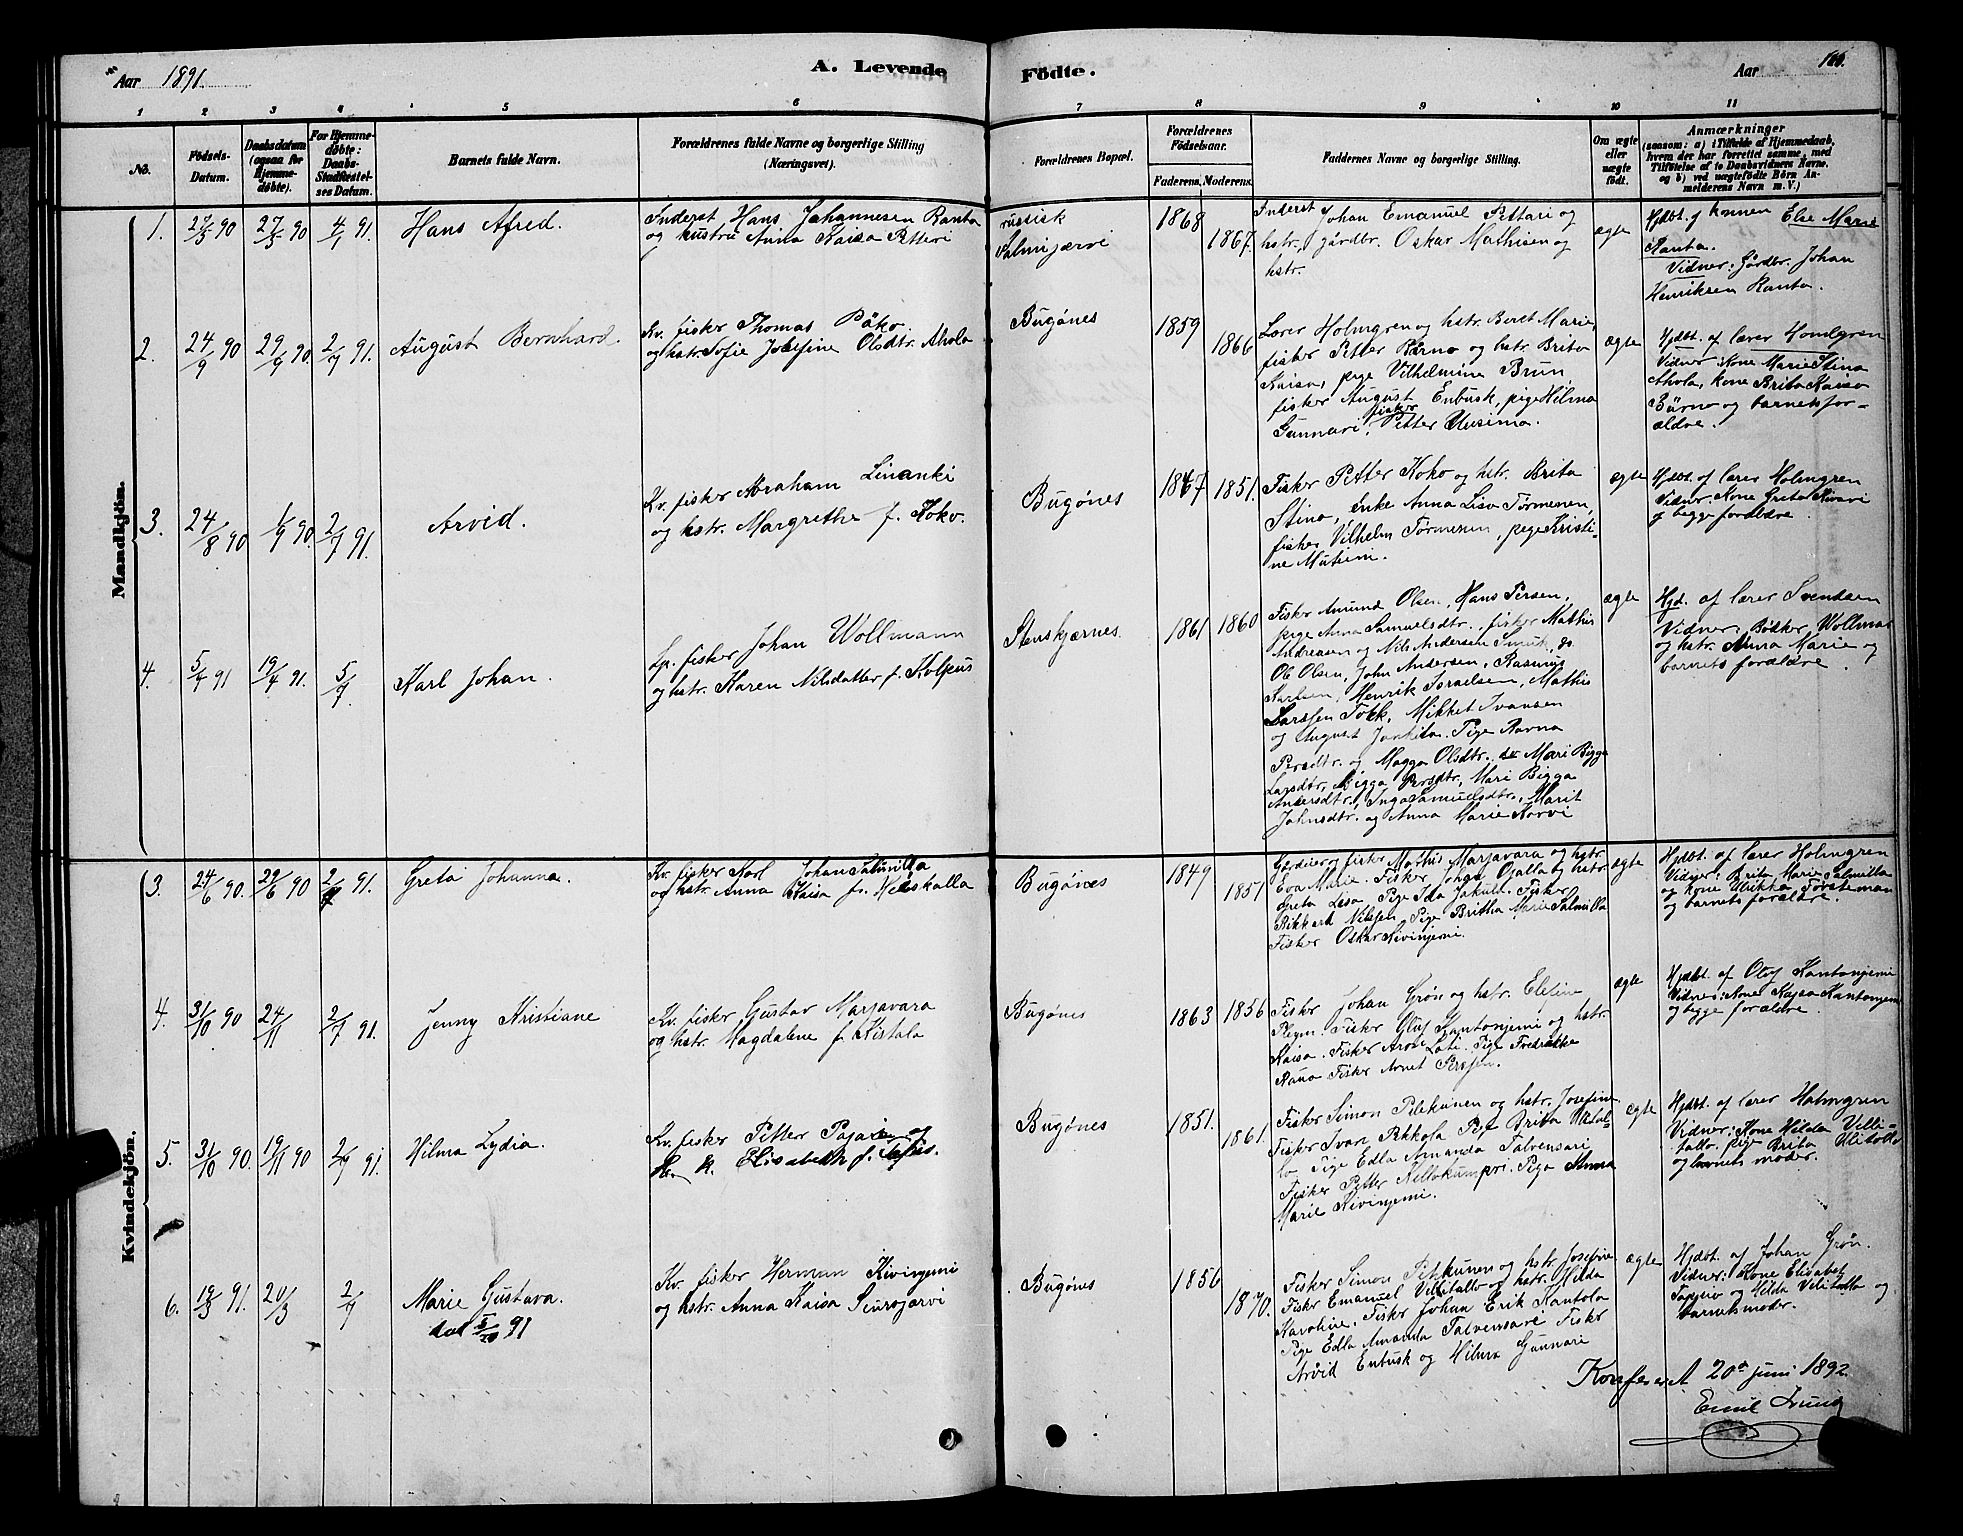 Aar 1891.
A. Levende Födte.
Aar
166.
1 2 3 4 5 6 7 8 9 10 11
No.
Födsels-Datum.
Daabsdatum (ogsaa for Hjemmedöbte).
For Hjemmedöbte: Daabs-Stadfæstelses Datum.
Barnets fulde Navn.
Forældrenes fulde Navne og borgerlige Stilling (Næringsvei).
Forældrenes Bopæl.
Forældrenes Födselsaar.
Faderens. Moderens.
Faddernes Navne og borgerlige Stilling.
Om ægte eller uægte födt.
Anmærkninger
(saasom: a) i Tilfælde af Hjemmedaab, hvem der har forrettet samme, med Tilföielse af to Daabsvidners Navne, og b) ved uægtefödte Börn Anmelderens Navn m. V.)
Mandkjön.
1. 27/3 90 27/3 90 4/1 91. Hans Afred.
Inderst Hans Johannesen Ranta
og hustru Anna Kaisa Petteri
russisk
Salmijærvi
1868 1867.
Inderst Johan Emanuel Pettari og
hstr., gårdbr. Oskar Mathisen og
hstr.
ægte
Hjdbt. af konen Else Marie
Ranta.
Vidner: Gårdbr. Johan
Henriksen Ranta.
2. 24/9 90 29/9 90 2/7 91. August Bernhard.
Kv. fisker Thomas Påko
og hstr. Sofie Josefine Olsdtr. Ahola
Bugönes
1859 1866
Lærer Holmgren og hstr. Beret Marie,
fisker Petter Bärno og hstr. Brita
Kaisa, pige Vilhelmine Brun
fisker August Enbusk, pige Hilma
Gunnari, fisker Petter Uusima.
ægte
Hjdbt. af lærer Homlgren
Vidner: Kone Marie Stina
Ahola, kone Brita Kaisa
Bärno og barnets for-
ældre.
3. 24/8 90 1/9 90. 2/7 91. Arvid.
Kv. fisker Abraham Linanki
og hstr. Margrethe f. Koko.
Bugönes
1847 1851.
Fisker Petter Koko og hstr. Brita
Stina, enke Anna Lisa Törmenen,
fisker Vilhelm Törmenen, pige Kristi-
ne Mutseni.
ægte
Hjdbt. af lærer Holmgren
Vidner: Kone Greta Kivari
og begge forældre.
4. 5/4 91 19/4 91. 5/7 Karl Johan.
Lp. fisker Johan Wollmann
og hstr. Karen Nilsdatter f. Kolpus
Stenskjærnes.
1861 1860
Fisker Amund Olsen, Hans Persen,
pige Anna Samuelsdtr., fisker Mathis
Andreasen og Nils Andersen Smuk, do.
Ol Olsen, John Andersen, Rasmus
Karlsen, Henrik Israelsen, Mathis
Larssen Tokk, Mikkel Ivansen
og August Jankila. Pige Ravna
Persdtr. og Magga Olsdtr. Mari Bigga
Larsdtr, Bigga Persdtr., Mari Bigga
Andersdtr., Inga Samuelsdtr., Marit
Johnsdtr. og Anna Marie Korvi
ægte
Hjd. af lærer Svendsen
Vidner: Bödker Wollman
og hstr. Anna Marie og
barnets forældre.
Kvindekjön.
3. 24/6 90. 29/6 90 2/7 91. Greta Johanna.
Kv. fisker Karl Johan Salmilla
og hstr. Anna Kaisa f. Heiskalla
Bugönes
1849 1857
Gårdeier og fisker Mathis Marjavara og hstr.
Eva Marie. Fisker Johan Ojalla og hstr.
Greta Lisa, Pige Ida Jakula. Fisker
Rikkard Nilssen, Pige Britha Marie Salmilla
Fisker Oskar Kivinjemi.
ægte
Hjdbt. af lærer Holmgren
Vidner: Brita Marie Salmilla
og kone Ulrikka Försteman
og barnets forældre.
4. 31/10 90 24/11 2/7 91. Jenny Kristiane
Kv. fisker Gustav Marjavara
og hstr. Magdalene f. Kistala
Bugönes
1863 1856
Fisker Johan Grön og hstr. Elefine
Plegm. Fisker Oluf Kantonjemi og hstr.
Kaisa. Fisker Aron Lati. Pige Fredrikke
Rauo Fisker Arnet Perssen.
ægte
Hjdbt. af Oluf Kantonjemi
Vidner: Kone Kajsa Kantonjemi
og begge forældre.
5. 31/10 90. 19/11 90 2/7 91. Hilma Lydia.
Kv. fisker Petter Pajari og
Elisabeth f.
Bugönes
1851. 1861.
Fisker Simon Pikkunen og hstr. Josefine
Fisker Ivar Pekkola Pige Brita Ulital-
lo Pige Edla Amanda Talvensari
Fisker Petter Kellokumpri. Pige Anna
Marie Kivinjemi.
ægte
Hjdbt. af lærer Holmgren
Vidner: Kone Hilda Velli-
tallo, pige Brita Ulitallo
og barnets moder.
6. 19/3 91. 20/3 2/7 Marie Gustava.
död 5/10 91
Kv. fisker Herman Kivinjemi
og hstr. Anna Kaisa Seurojarvi
Bugönes
1856 1870.
Fisker Simon Pikkunen og hstr. Josefine
Fisker Emanuel Vellitallo og hstr. Hilda
Karoline. Fisker Johan Erik Kantola
Pige Edla Amanda Talvensare Fisker
Arvid Enbusk og Hilma Gunnari
ægte
Hjdbt. af Johan Grön.
Vidner: Kone Elisabet
og Hilda Velitallo og
barnets moder.
Konfereret 20de juni 1892
Emil Lund